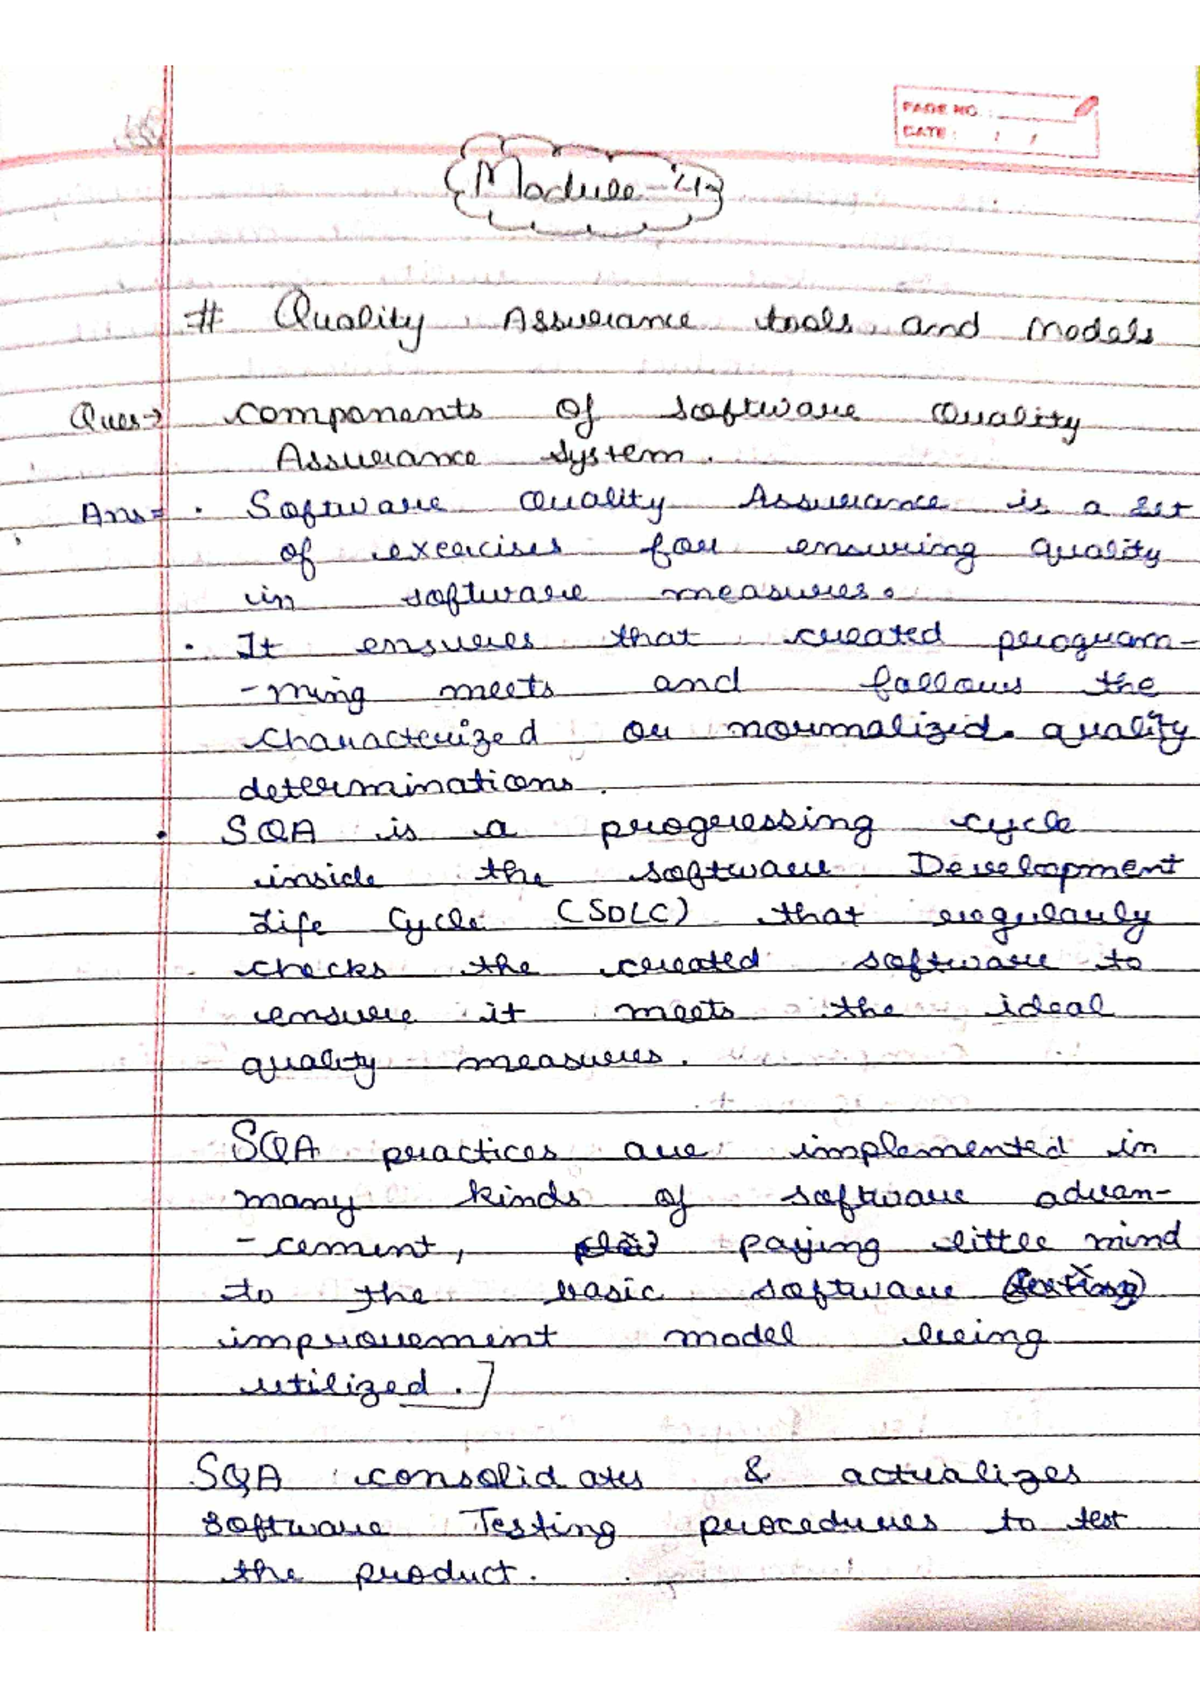 PAGE NO. :
DATE : / /
Module-4
# Quality Assurance tools and models
Ques→ components of software quality
Assurance system.
Ans= . Software quality Assurance is a set
of exercises for ensuring quality
in software measures.
. It ensures that created program-
-ming meets and follows the
characterized or normalized quality
determinations.
. SQA is a progressing cycle
inside the software Development
Life Cycle (SDLC) that regularly
checks the created software to
ensure it meets the ideal
quality measures.
SQA practices are implemented in
many kinds of software advan-
-cement, paying little mind
to the basic software
improvement model being
utilized.]
SQA consolidates & actualizes
software Testing procedures to test
the product.